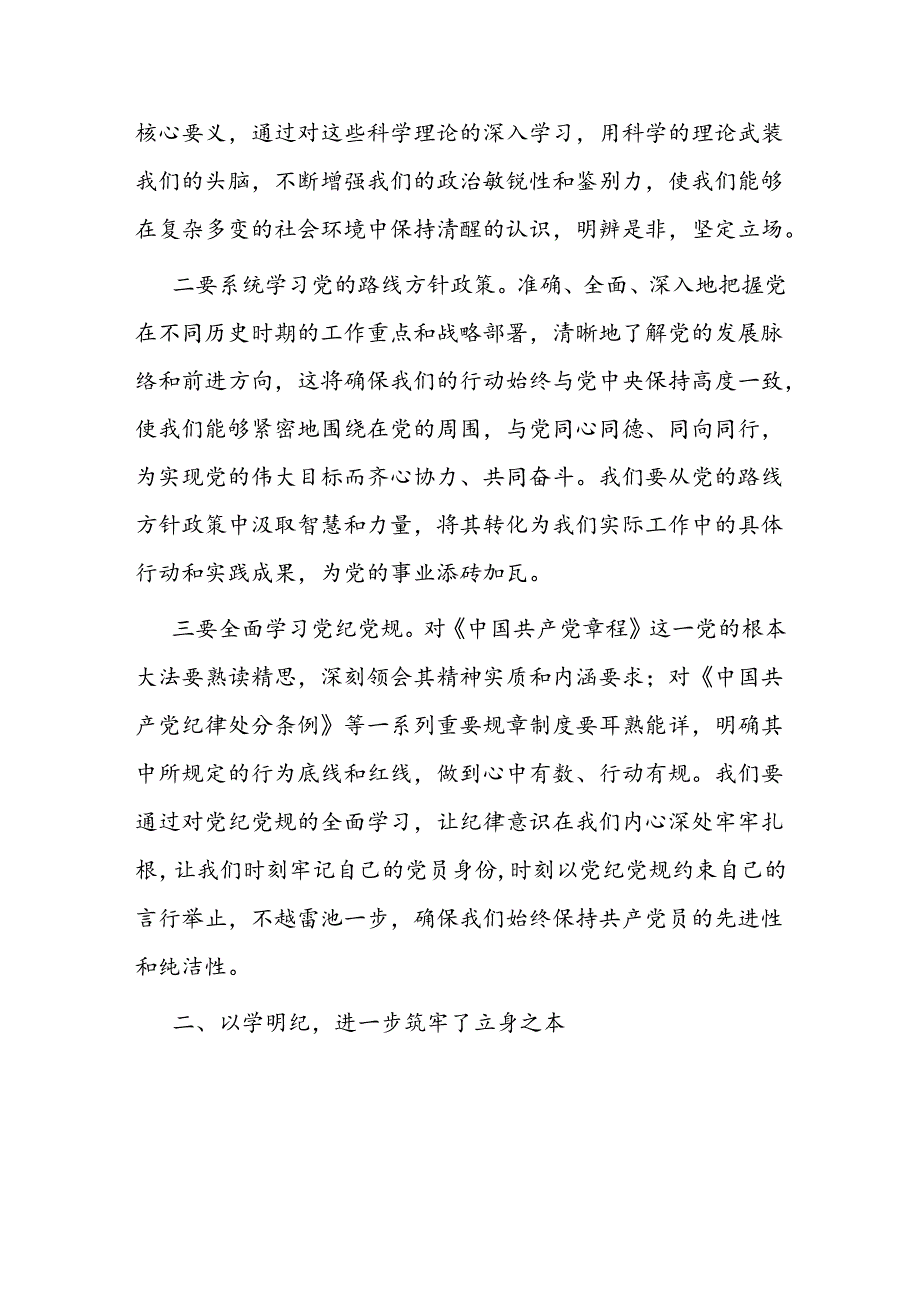 核心要义，通过对这些科学理论的深入学习，用科学的理论武装
我们的头脑，不断增强我们的政治敏锐性和鉴别力，使我们能够
在复杂多变的社会环境中保持清醒的认识，明辨是非，坚定立场。
二要系统学习党的路线方针政策。准确、全面、深入地把握党
在不同历史时期的工作重点和战略部署，清晰地了解党的发展脉
络和前进方向，这将确保我们的行动始终与党中央保持高度一致，
使我们能够紧密地围绕在党的周围，与党同心同德、同向同行，
为实现党的伟大目标而齐心协力、共同奋斗。我们要从党的路线
方针政策中汲取智慧和力量，将其转化为我们实际工作中的具体
行动和实践成果，为党的事业添砖加瓦。
三要全面学习党纪党规。对《中国共产党章程》这一党的根本
大法要熟读精思，深刻领会其精神实质和内涵要求；对《中国共
产党纪律处分条例》等一系列重要规章制度要耳熟能详，明确其
中所规定的行为底线和红线，做到心中有数、行动有规。我们要
通过对党纪党规的全面学习，让纪律意识在我们内心深处牢牢扎
根，让我们时刻牢记自己的党员身份，时刻以党纪党规约束自己的
言行举止，不越雷池一步，确保我们始终保持共产党员的先进性
和纯洁性。
二、以学明纪，进一步筑牢了立身之本